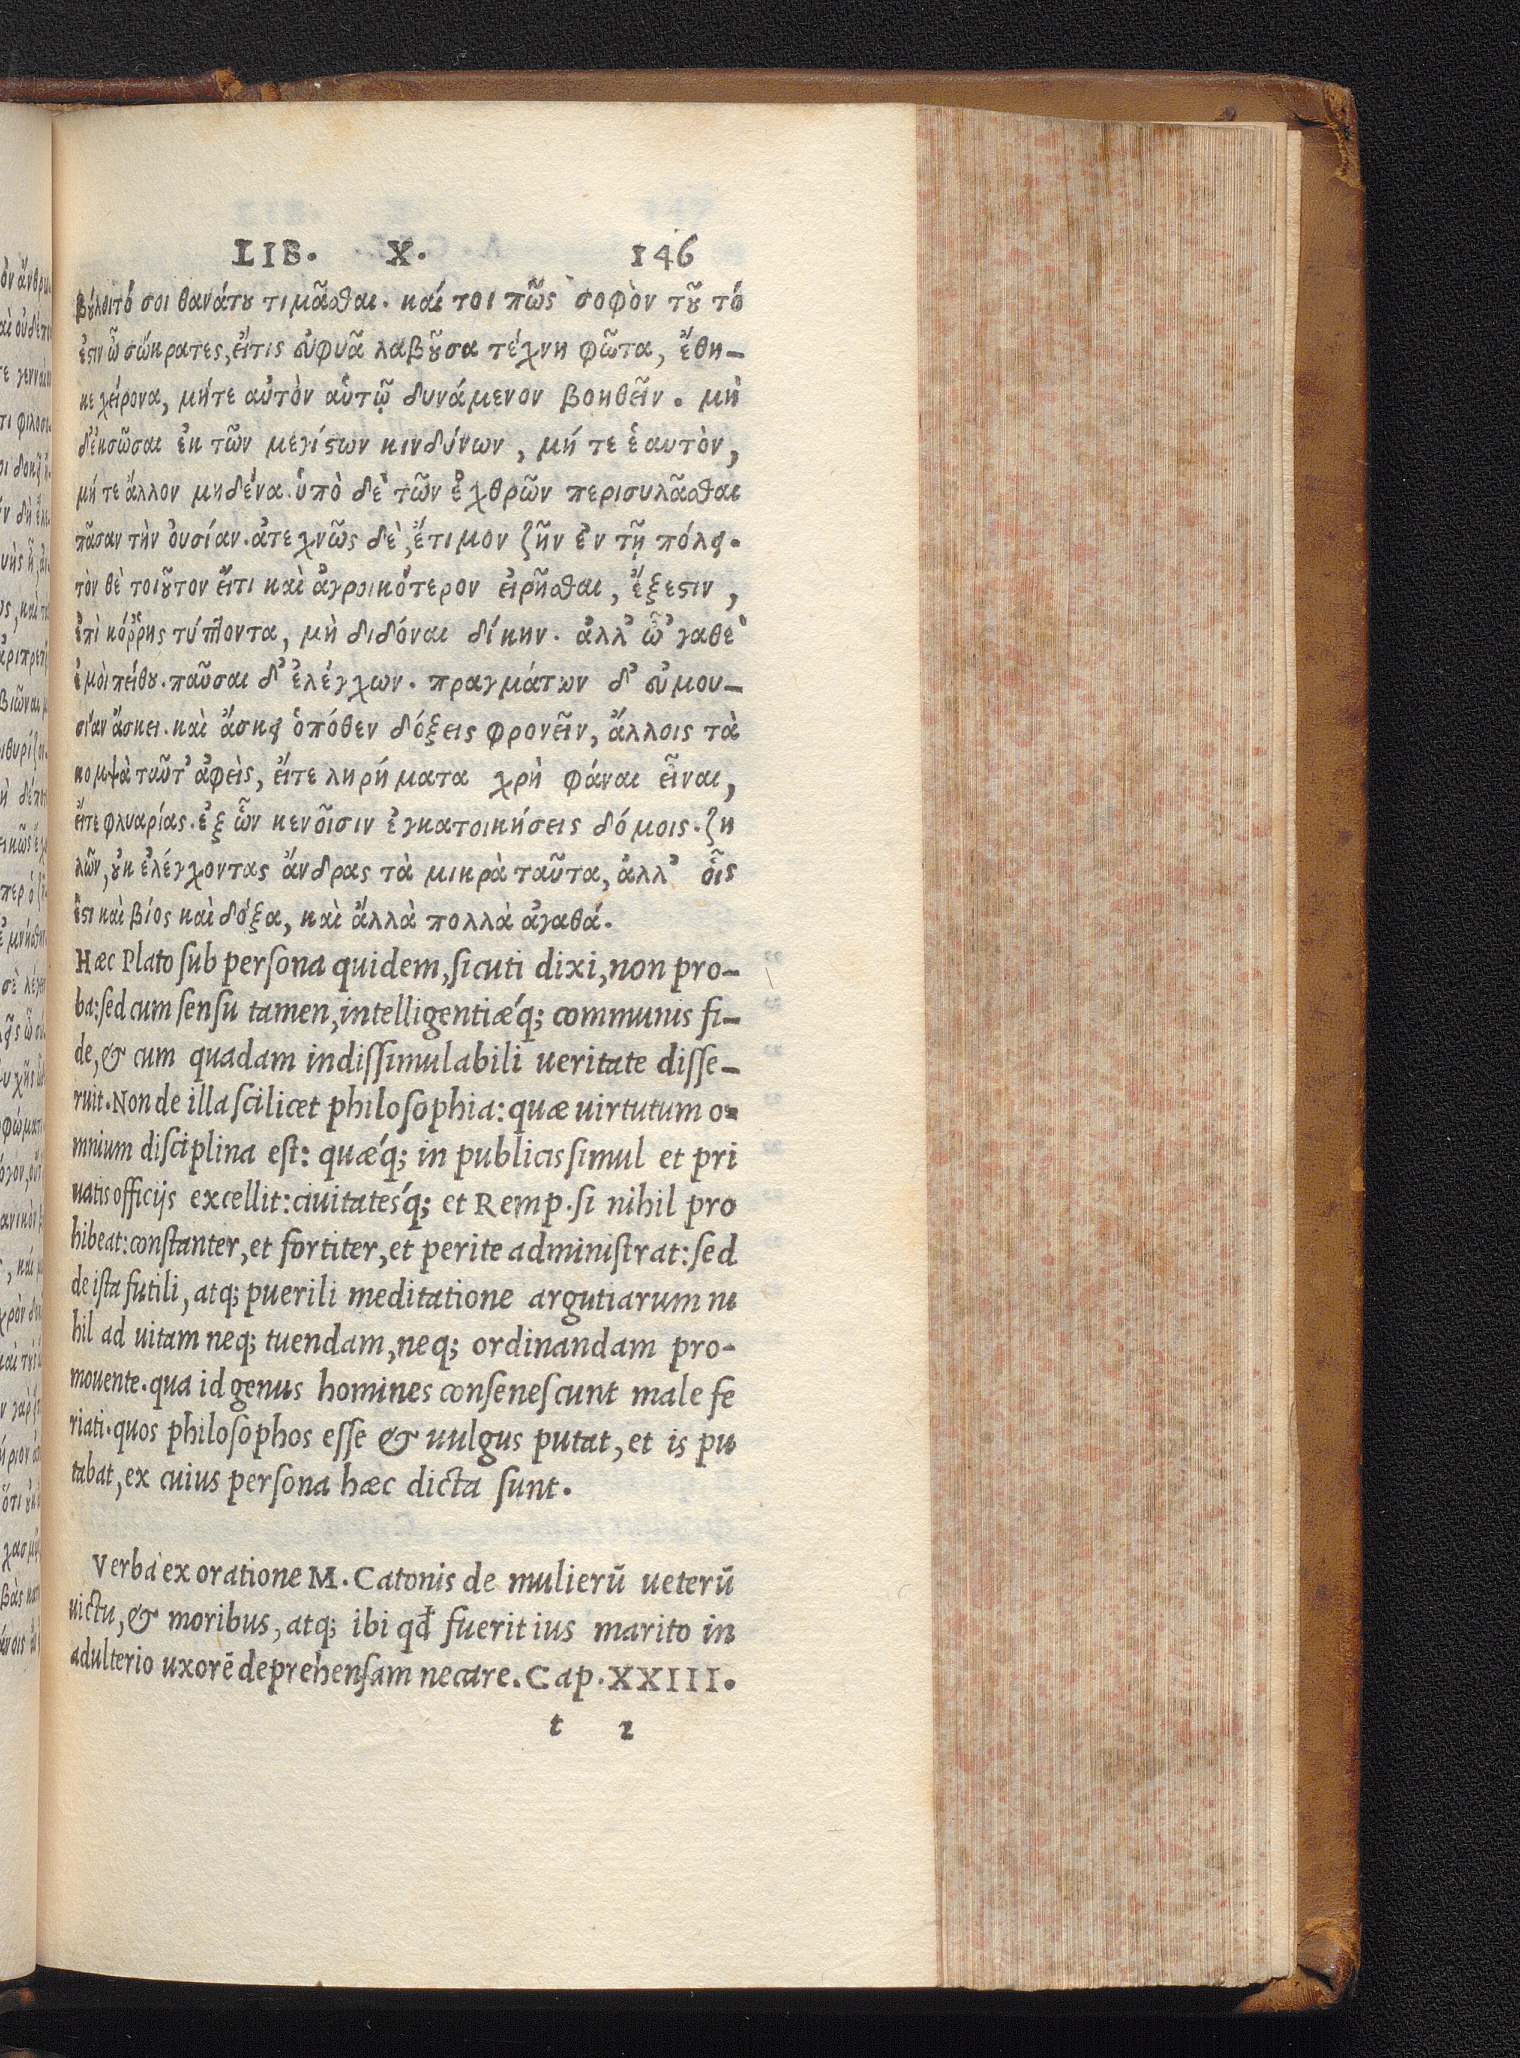 LIB. X. 146
βούλοιτό σοι θανάτου τιμᾶσθαι. καί τοι πῶς σοφὸν τοῦ τό
ἐστιν ὦ σώκρατες, εἴτις εὐφυᾶ λαβοῦσα τέχνη φῶτα, ἔθη-
κε χείρονα, μήτε αὐτὸν αὑτῷ δυνάμενον βοηθεῖν. μὴ
δ' ἐκσῶσαι ἐκ τῶν μεγίστων κινδύνων, μή τε ἑαυτὸν,
μή τε ἄλλον μηδένα. ὑπὸ δὲ τῶν ἐχθρῶν περισυλᾶσθαι
πᾶσαν τὴν οὐσίαν. ἀτεχνῶς δὲ, ἔτιμον ζῆν ἐν τῇ πόλει.
τὸν θὲ τοιοῦτον εἴτι καὶ ἀγροικότερον εἰρῆσθαι, ἔξεστιν,
ἐπὶ κόῤῥης τύπτοντα, μὴ διδόναι δίκην. ἀλλ' ὦ' γαθὲ
ἐμὸι πείθου. παῦσαι δ' ἐλέγχων. πραγμάτων δ' εὐμου-
σίαν ἄσκει. καὶ ἄσκει ὁπόθεν δόξεις φρονεῖν, ἄλλοις τὰ
κομψὰ ταῦτ' ἀφεὶς, εἴτε ληρήματα χρὴ φάναι εἶναι,
εἴτε φλυαρίας. ἐξ ὧν κενοῖσιν ἐγκατοικήσεις δόμοις. ζη
λῶν, οὐκ ἐλέγχοντας ἄνδρας τὰ μικρὰ ταῦτα, ἀλλ' οἷς
ἔστι καὶ βίος καὶ δόξα, καὶ ἄλλὰ πολλὰ ἀγαθά.
Hæc Plato sub persona quidem, sicuti dixi, non pro-
ba: sed cum sensu tamen, intelligentiæq́; communis fi-
de, & cum quadam indissimulabili ueritate disse-
ruit. Non de illa scilicet philosophia: quæ uirtutum o-
mnium disciplina est: quæq́; in publicis simul et pri
uatis officijs excellit: ciuitatesq́; et Remp. si nihil pro
hibeat: constanter, et fortiter, et perite administrat: sed
de ista futili, atq; puerili meditatione argutiarum ni
hil ad uitam neq; tuendam, neq; ordinandam pro-
mouente. qua id genus homines consenescunt male fe
riati. quos philosophos esse & uulgus putat, et is pu
tabat, ex cuius persona hæc dicta sunt.
Verba ex oratione M. Catonis de mulierū ueterū
uictu, & moribus, atq; ibi qđ fuerit ius marito in
adulterio uxorē deprehensam necare. Cap. XXIII.
t 2